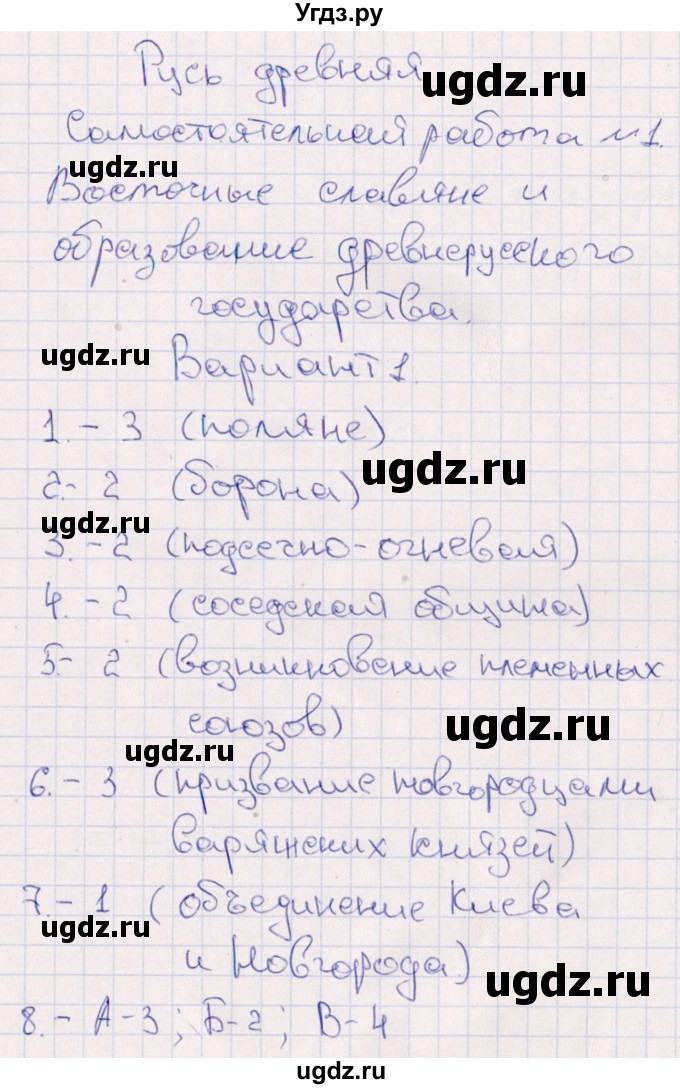 Угдз.ру
Русь древняя
ugdz.ru
Самостоятельная работа №1.
ugdz.ru
Восточные славяне и
образование древнерусского
государства.
ugdz.ru
Вариант 1.
1. - 3 (поляне)
ugdz.ru
2. - 2 (борона)
ugdz.ru
3. - 2 (подсечно-огневая)
4. - 2 (соседская община)
5. - 2 (возникновение племенных
союзов)
ugdz.ru
ugdz.ru
6. - 3 (призвание новгородцами
варяжских князей)
7. - 1 (объединение Киева
ugdz.ru
и Новгорода)
ugdz.ru
8. - А-3; Б-2; В-4
ugdz.ru